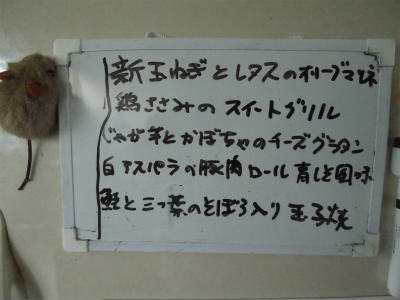 新玉ねぎとレタスのオリーブマリネ
鶏ささみのスイートグリル
じゃが芋とかぼちゃのチーズグラタン
白アスパラの豚肉ロール 青じそ風味
鮭と三つ葉のそぼろ入り玉子焼